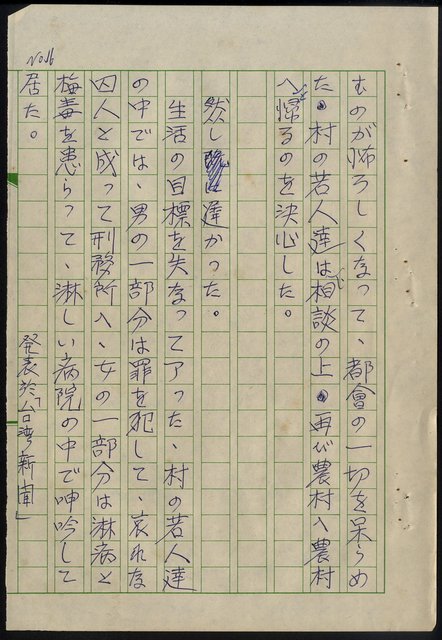 No.16
むのが怖ろしくなって、都會の一切を呆らめ
た。村の若人達は相談の上、再び農村へ農村
へと帰るのを決心した。
然し 遅かった。
生活の目標を失なって了った、村の若人達
の中では、男の一部分は罪を犯して、哀れな
囚人と成って刑務所へ、女の一部分は淋病と
梅毒を患らって、淋しい病院の中で呻吟して
居た。
発表於「台湾新聞」